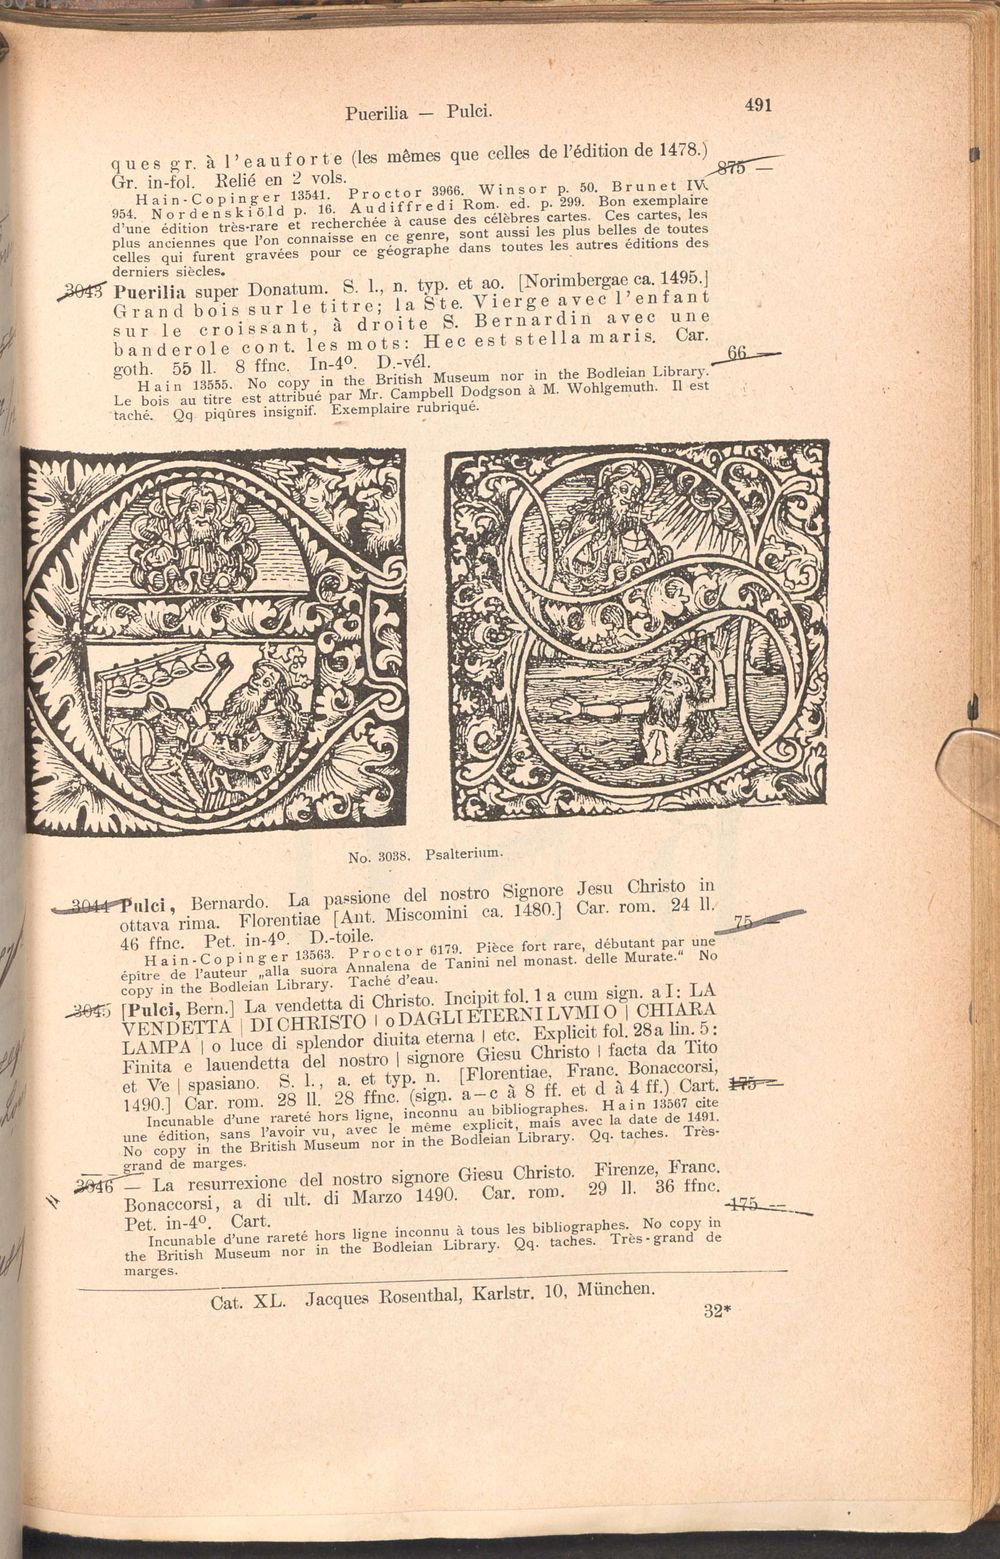 Puerilia — Pulci.
491
ques gr. à l'eauforte (les mêmes que celles de l'édition de 1478.)
Gr. in-fol. Relié en 2 vols.
875 —
Hain-Copinger 13541. Proctor 3966. Winsor p. 50. Brunet IV,
954. Nordenskiöld p. 16. Audiffredi Rom. ed. p. 299. Bon exemplaire
d'une édition très-rare et recherchée à cause des célèbres cartes. Ces cartes, les
plus anciennes que l'on connaisse en ce genre, sont aussi les plus belles de toutes
celles qui furent gravées pour ce géographe dans toutes les autres éditions des
derniers siècles.
3043 Puerilia super Donatum. S. l., n. typ. et ao. [Norimbergae ca. 1495.]
Grand bois sur le titre; la Ste. Vierge avec l'enfant
sur le croissant, à droite S. Bernardin avec une
banderole cont. les mots: Hec est stella maris. Car.
goth. 55 ll. 8 ffnc. In-4º. D.-vél.
66 —
Hain 13555. No copy in the British Museum nor in the Bodleian Library.
Le bois au titre est attribué par Mr. Campbell Dodgson à M. Wohlgemuth. Il est
taché. Qq piqûres insignif. Exemplaire rubriqué.
No. 3038. Psalterium.
3044 Pulci, Bernardo. La passione del nostro Signore Jesu Christo in
ottava rima. Florentiae [Ant. Miscomini ca. 1480.] Car. rom. 24 ll.
46 ffnc. Pet. in-4º. D.-toile.
75 —
Hain-Copinger 13563. Proctor 6179. Pièce fort rare, débutant par une
épitre de l'auteur „alla suora Annalena de Tanini nel monast. delle Murate." No
copy in the Bodleian Library. Taché d'eau.
3045 [Pulci, Bern.] La vendetta di Christo. Incipit fol. 1 a cum sign. a I: LA
VENDETTA | DI CHRISTO | o DAGLI ETERNI LVMI O | CHIARA
LAMPA | o luce di splendor diuita eterna | etc. Explicit fol. 28a lin. 5:
Finita e lauendetta del nostro | signore Giesu Christo | facta da Tito
et Ve | spasiano. S. l., a. et typ. n. [Florentiae, Franc. Bonaccorsi,
1490.] Car. rom. 28 ll. 28 ffnc. (sign. a—c à 8 ff. et d à 4 ff.) Cart.
175 —
Incunable d'une rareté hors ligne, inconnu au bibliographes. Hain 13567 cite
une édition, sans l'avoir vu, avec le même explicit, mais avec la date de 1491.
No copy in the British Museum nor in the Bodleian Library. Qq. taches. Très-
grand de marges.
3046 — La resurrexione del nostro signore Giesu Christo. Firenze, Franc.
Bonaccorsi, a di ult. di Marzo 1490. Car. rom. 29 ll. 36 ffnc.
Pet. in-4º. Cart.
175 —
Incunable d'une rareté hors ligne inconnu à tous les bibliographes. No copy in
the British Museum nor in the Bodleian Library. Qq. taches. Très-grand de
marges.
Cat. XL. Jacques Rosenthal, Karlstr. 10, München.
32*